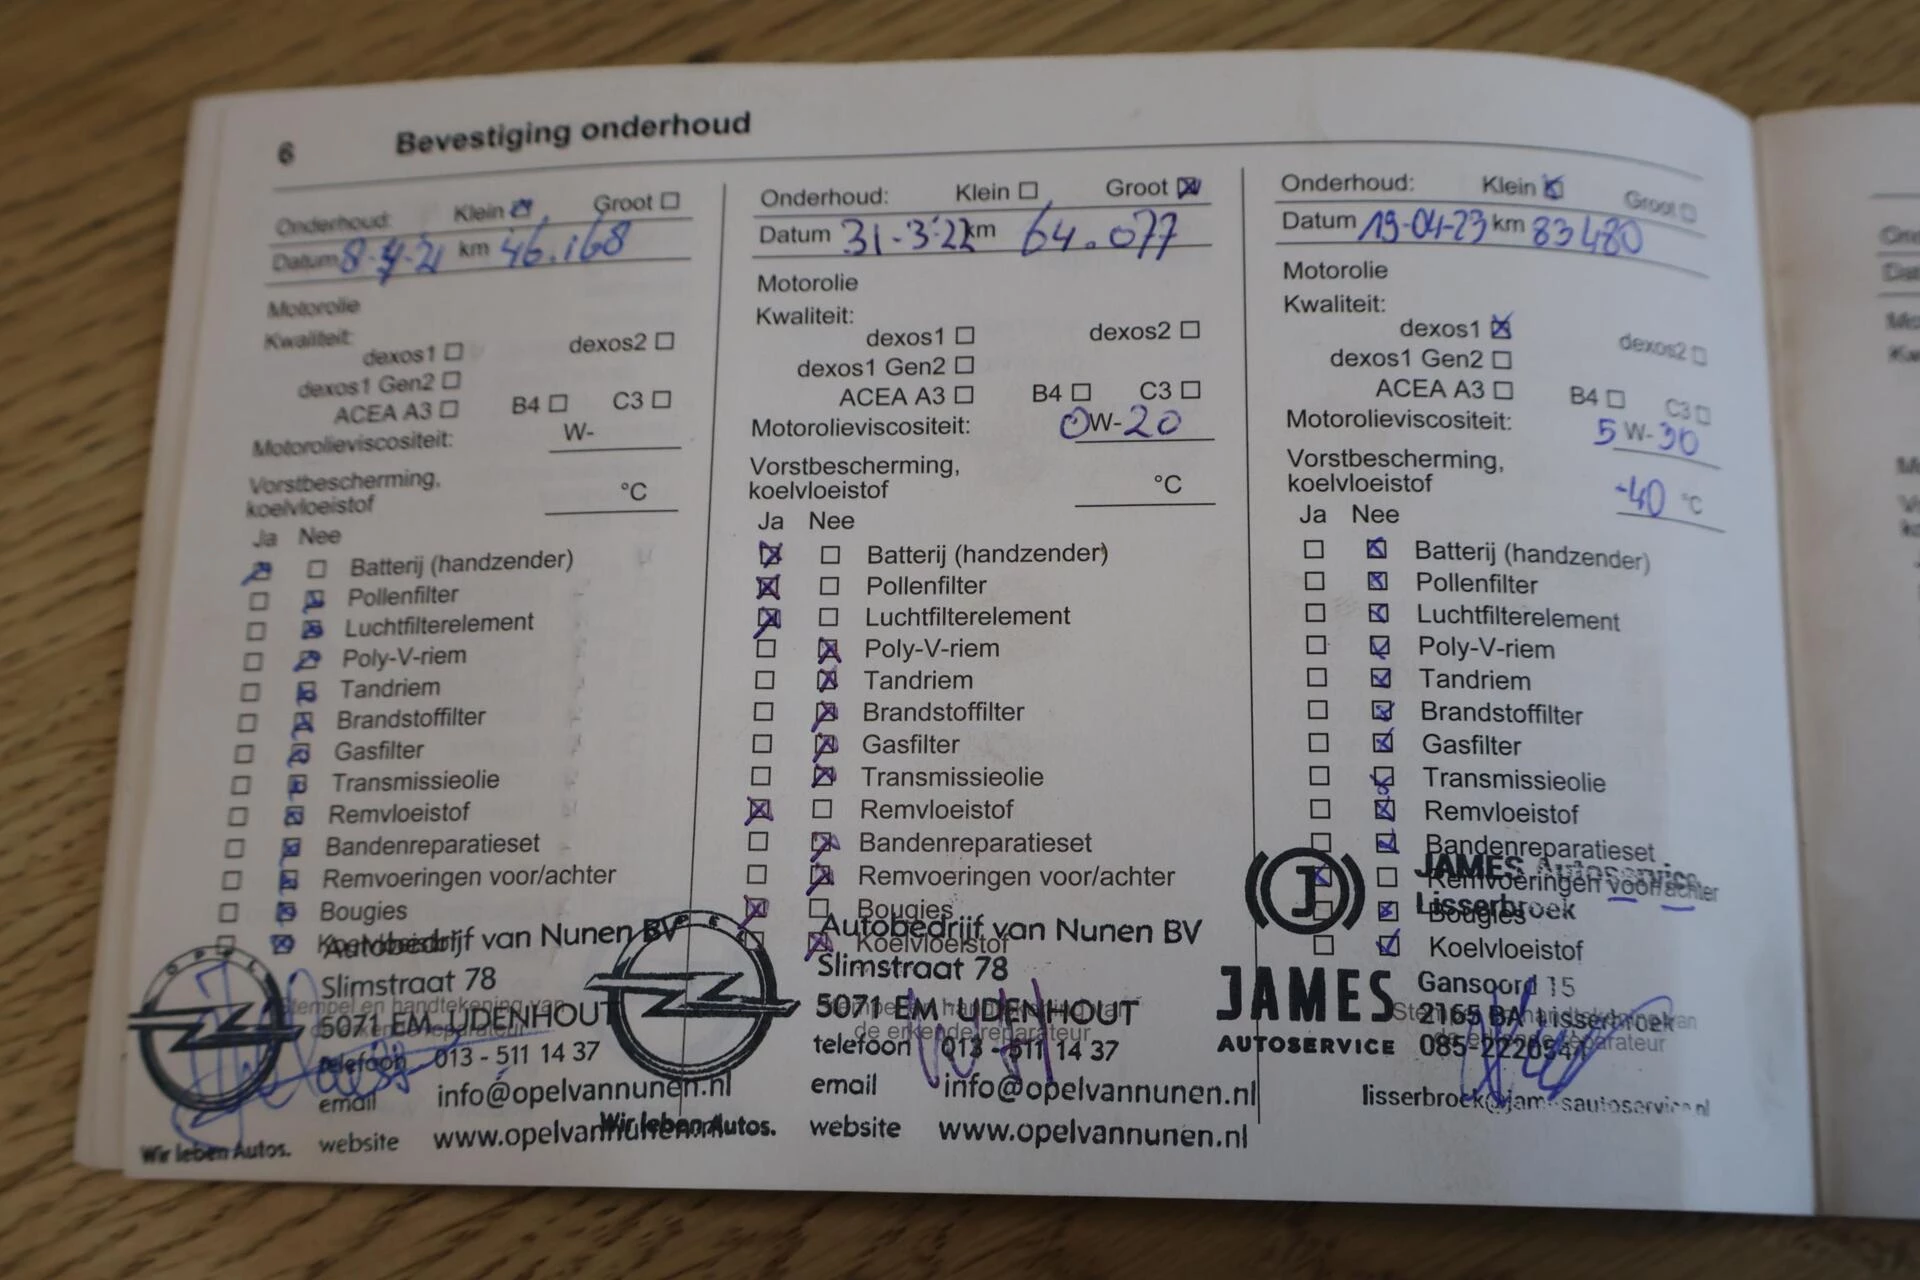 6 Bevestiging onderhoud
Onderhoud: Klein Groot
Datum 8-4-21 km 46.168
Motorolie
Kwaliteit:
dexos1 dexos2
dexos1 Gen2
ACEA A3 B4 C3
Motorolieviscositeit: W-
Vorstbescherming,
koelvloeistof °C
Ja Nee
Batterij (handzender)
Pollenfilter
Luchtfilterelement
Poly-V-riem
Tandriem
Brandstoffilter
Gasfilter
Transmissieolie
Remvloeistof
Bandenreparatieset
Remvoeringen voor/achter
Bougies
Koelvloeistof
Autobedrijf van Nunen BV
Slimstraat 78
Stempel en handtekening van
5071 EM UDENHOUT
de erkende reparateur
telefoon 013 - 511 14 37
email info@opelvannunen.nl
website www.opelvannunen.nl
OPEL
Wir leben Autos.
Onderhoud: Klein Groot
Datum 31-3-22 km 64.077
Motorolie
Kwaliteit:
dexos1 dexos2
dexos1 Gen2
ACEA A3 B4 C3
Motorolieviscositeit: 0W-20
Vorstbescherming,
koelvloeistof °C
Ja Nee
Batterij (handzender)
Pollenfilter
Luchtfilterelement
Poly-V-riem
Tandriem
Brandstoffilter
Gasfilter
Transmissieolie
Remvloeistof
Bandenreparatieset
Remvoeringen voor/achter
Bougies
Autobedrijf van Nunen BV
Koelvloeistof
Slimstraat 78
Stempel en handtekening van
5071 EM UDENHOUT
de erkende reparateur
telefoon 013 - 511 14 37
email info@opelvannunen.nl
website www.opelvannunen.nl
OPEL
Wir leben Autos.
Onderhoud: Klein Groot
Datum 19-04-23 km 83480
Motorolie
Kwaliteit:
dexos1 dexos2
dexos1 Gen2
ACEA A3 B4 C3
Motorolieviscositeit: 5 W-30
Vorstbescherming,
koelvloeistof -40 °C
Ja Nee
Batterij (handzender)
Pollenfilter
Luchtfilterelement
Poly-V-riem
Tandriem
Brandstoffilter
Gasfilter
Transmissieolie
Remvloeistof
Bandenreparatieset
JAMES Autoservice
Remvoeringen voor/achter
Lisserbroek
Bougies
Koelvloeistof
J
JAMES
AUTOSERVICE
Gansoord 15
Stempel en handtekening van
2165 BA Lisserbroek
de erkende reparateur
lisserbroek@jamesautoservice.nl